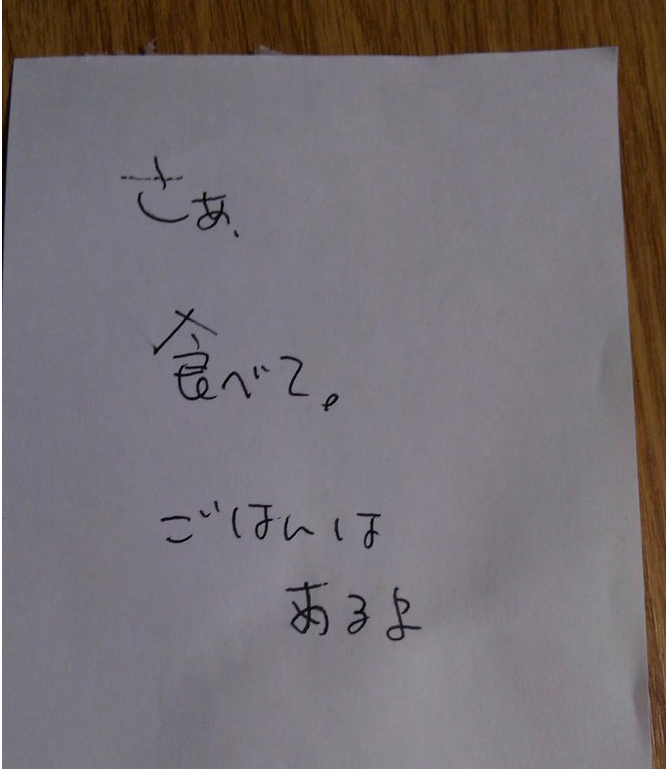 さぁ、
食べて。
ごはんは
あるよ